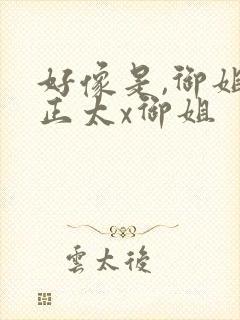 好像是,御姐
正太x御姐
雲太後